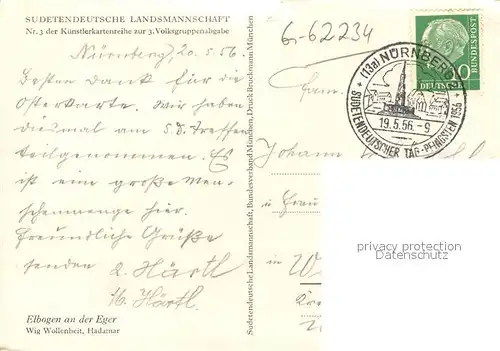 SUDETENDEUTSCHE LANDSMANNSCHAFT
Nr. 3 der Künstlerkartenreihe zur 3. Volksgruppenabgabe
Nürnberg, 20. 5. 56.
Besten Dank für die
Osterkarte. Wir haben
diesmal am S. D. Treffen
teilgenommen. Es
ist eine große Men-
schenmenge hier.
Freundliche Grüße
senden
Härtl
Härtl.
Elbogen an der Eger
Wig Wollenheit, Hadamar
Sudetendeutsche Landsmannschaft, Bundesverband München, Druck Bruckmann München
6-62234
(13a) NÜRNBERG
19.5.56.-9
SUDETENDEUTSCHER TAG-PFINGSTEN 1956
DEUTSCHE
BUNDESPOST
Fam.
Johann
u Frau
in
privacy protection
privacy protection